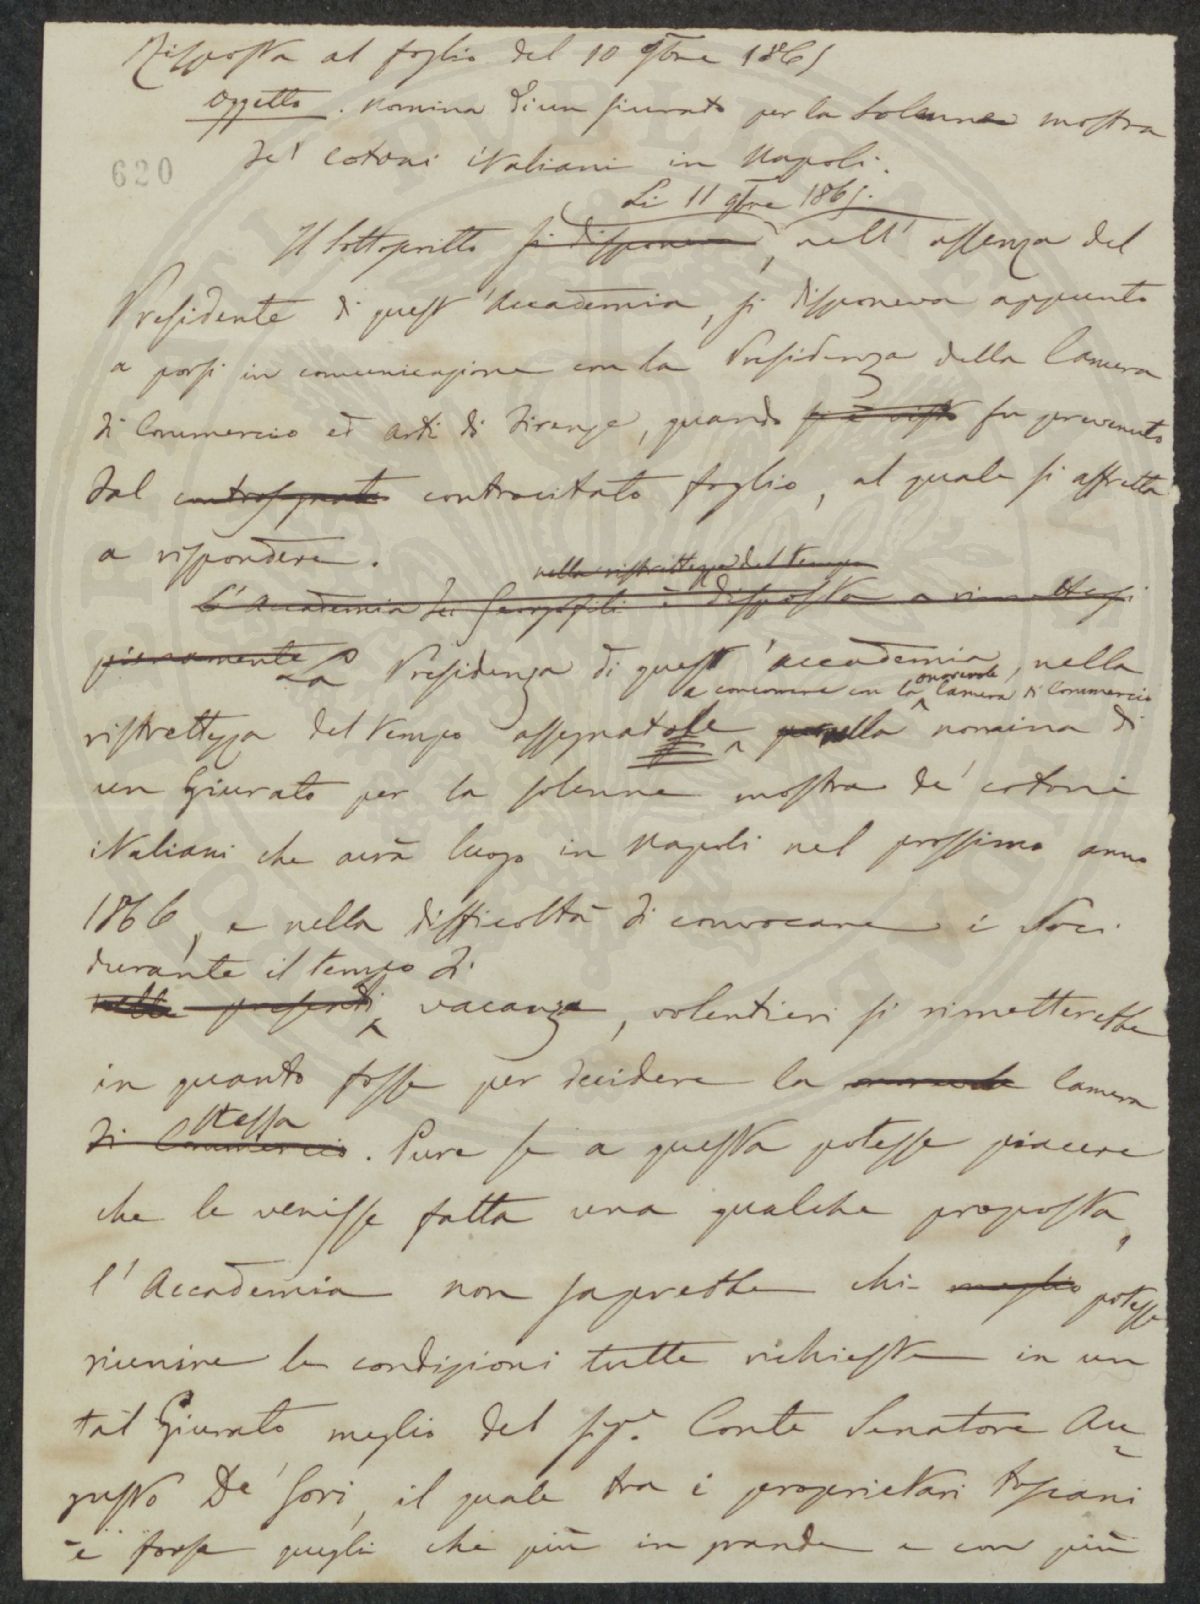 Risposta al foglio del 10 9bre 1865
Oggetto. Nomina di un giurato per la solenne mostra
de' cotoni italiani in Napoli.
620
Li 11 9bre 1865.
Il Sottoscritto si disponeva, nell' assenza del
Presidente di quest' Accademia, si disponeva appunto
a porsi in comunicazione con la Presidenza della Camera
di Commercio ed Arti di Firenze, quando si è visto fu prevenuto
dal controsegnato controcitato foglio, al quale si affretta
a rispondere.
nella ristrettezza del tempo
L' Accademia dei Georgofili è disposta a rimettersi
pienamente La Presidenza di quest' accademia, nella
onorevole
a concorrere con la Camera di Commercio
ristrettezza del tempo assegnatole per nella nomina di
un Giurato per la solenne mostra de' cotoni
italiani che avrà luogo in Napoli nel prossimo anno
1866, e nella difficoltà di convocare i Soci
durante il tempo di
nelle presenti vacanze, volentieri si rimetterebbe
in quanto fosse per decidere la onorevole Camera
stessa
di Commercio. Pure se a questa potesse piacere
che le venisse fatta una qualche proposta,
l' Accademia non saprebbe chi meglio potesse
riunire le condizioni tutte richieste in un
tal Giurato meglio del sigr. Conte Senatore Au=
gusto De' Gori, il quale tra i proprietari toscani
è forse quegli che più in grande e con più